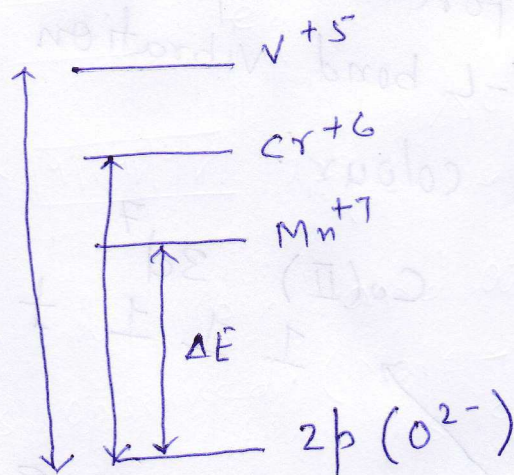 V+5
Cr+6
Mn+7
ΔE
2p (O2-)